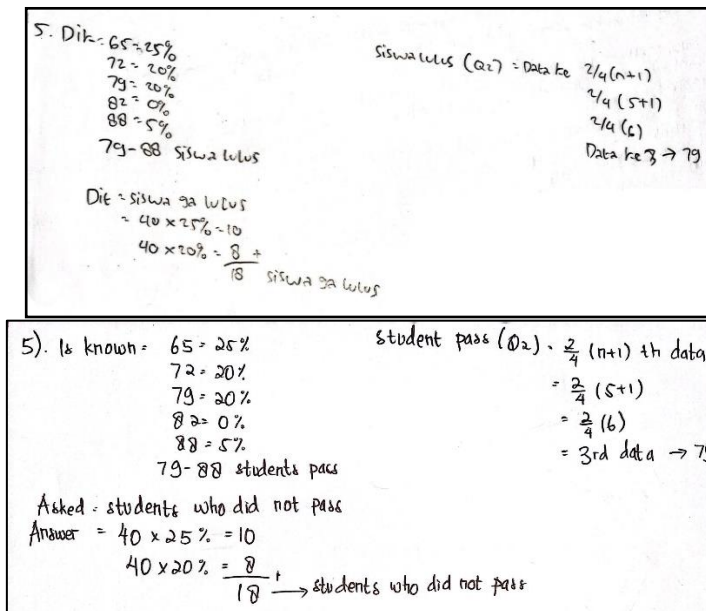 5. Dik = 65 = 25%
72 = 20%
79 = 20%
82 = 0%
88 = 5%
79-88 siswa lulus
Siswa lulus (Q2) = Data ke 2/4 (n+1)
2/4 (5+1)
2/4 (6)
Data ke 3 → 79
Dit = siswa ga lulus
= 40 x 25% = 10
40 x 20% = 8 +
18 siswa ga lulus
5). Is known = 65 = 25%
72 = 20%
79 = 20%
82 = 0%
88 = 5%
79-88 students pass
student pass (Q2) = 2/4 (n+1) th data
= 2/4 (5+1)
= 2/4 (6)
= 3rd data → 79
Asked = students who did not pass
Answer = 40 x 25% = 10
40 x 20% = 8 +
18 → students who did not pass